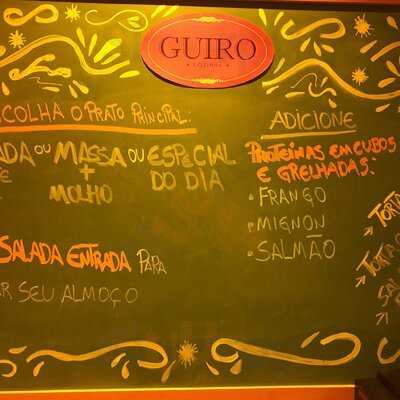 GUIRO
COZINHA
COLHA O PRATO PRINCIPAL:
ADA OU MASSA OU ESPECIAL
+ MOLHO
DO DIA
SALADA ENTRADA PARA
AR SEU ALMOÇO
ADICIONE
PROTEÍNAS EM CUBOS
E GRELHADAS:
• FRANGO
• MIGNON
• SALMÃO
TORTA
TORTA
SAL